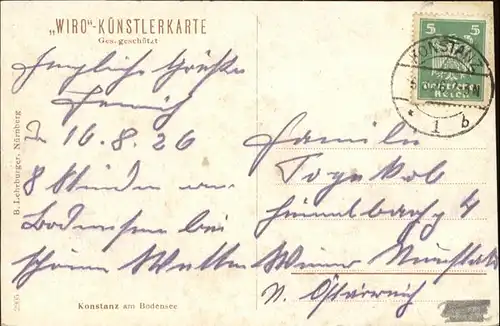 „WIRO“-KÜNSTLERKARTE
Ges. geschützt
Herzliche Grüße
Heinrich
16.8.26
8 Stunden am
Bodensee bei
schönem Wetter
B. Lehrburger, Nürnberg
2995
Konstanz am Bodensee
5 5
Deutsches
Reich
KONSTANZ
* 1 b
Familie
4
Wiener Neustadt
N. Österreich